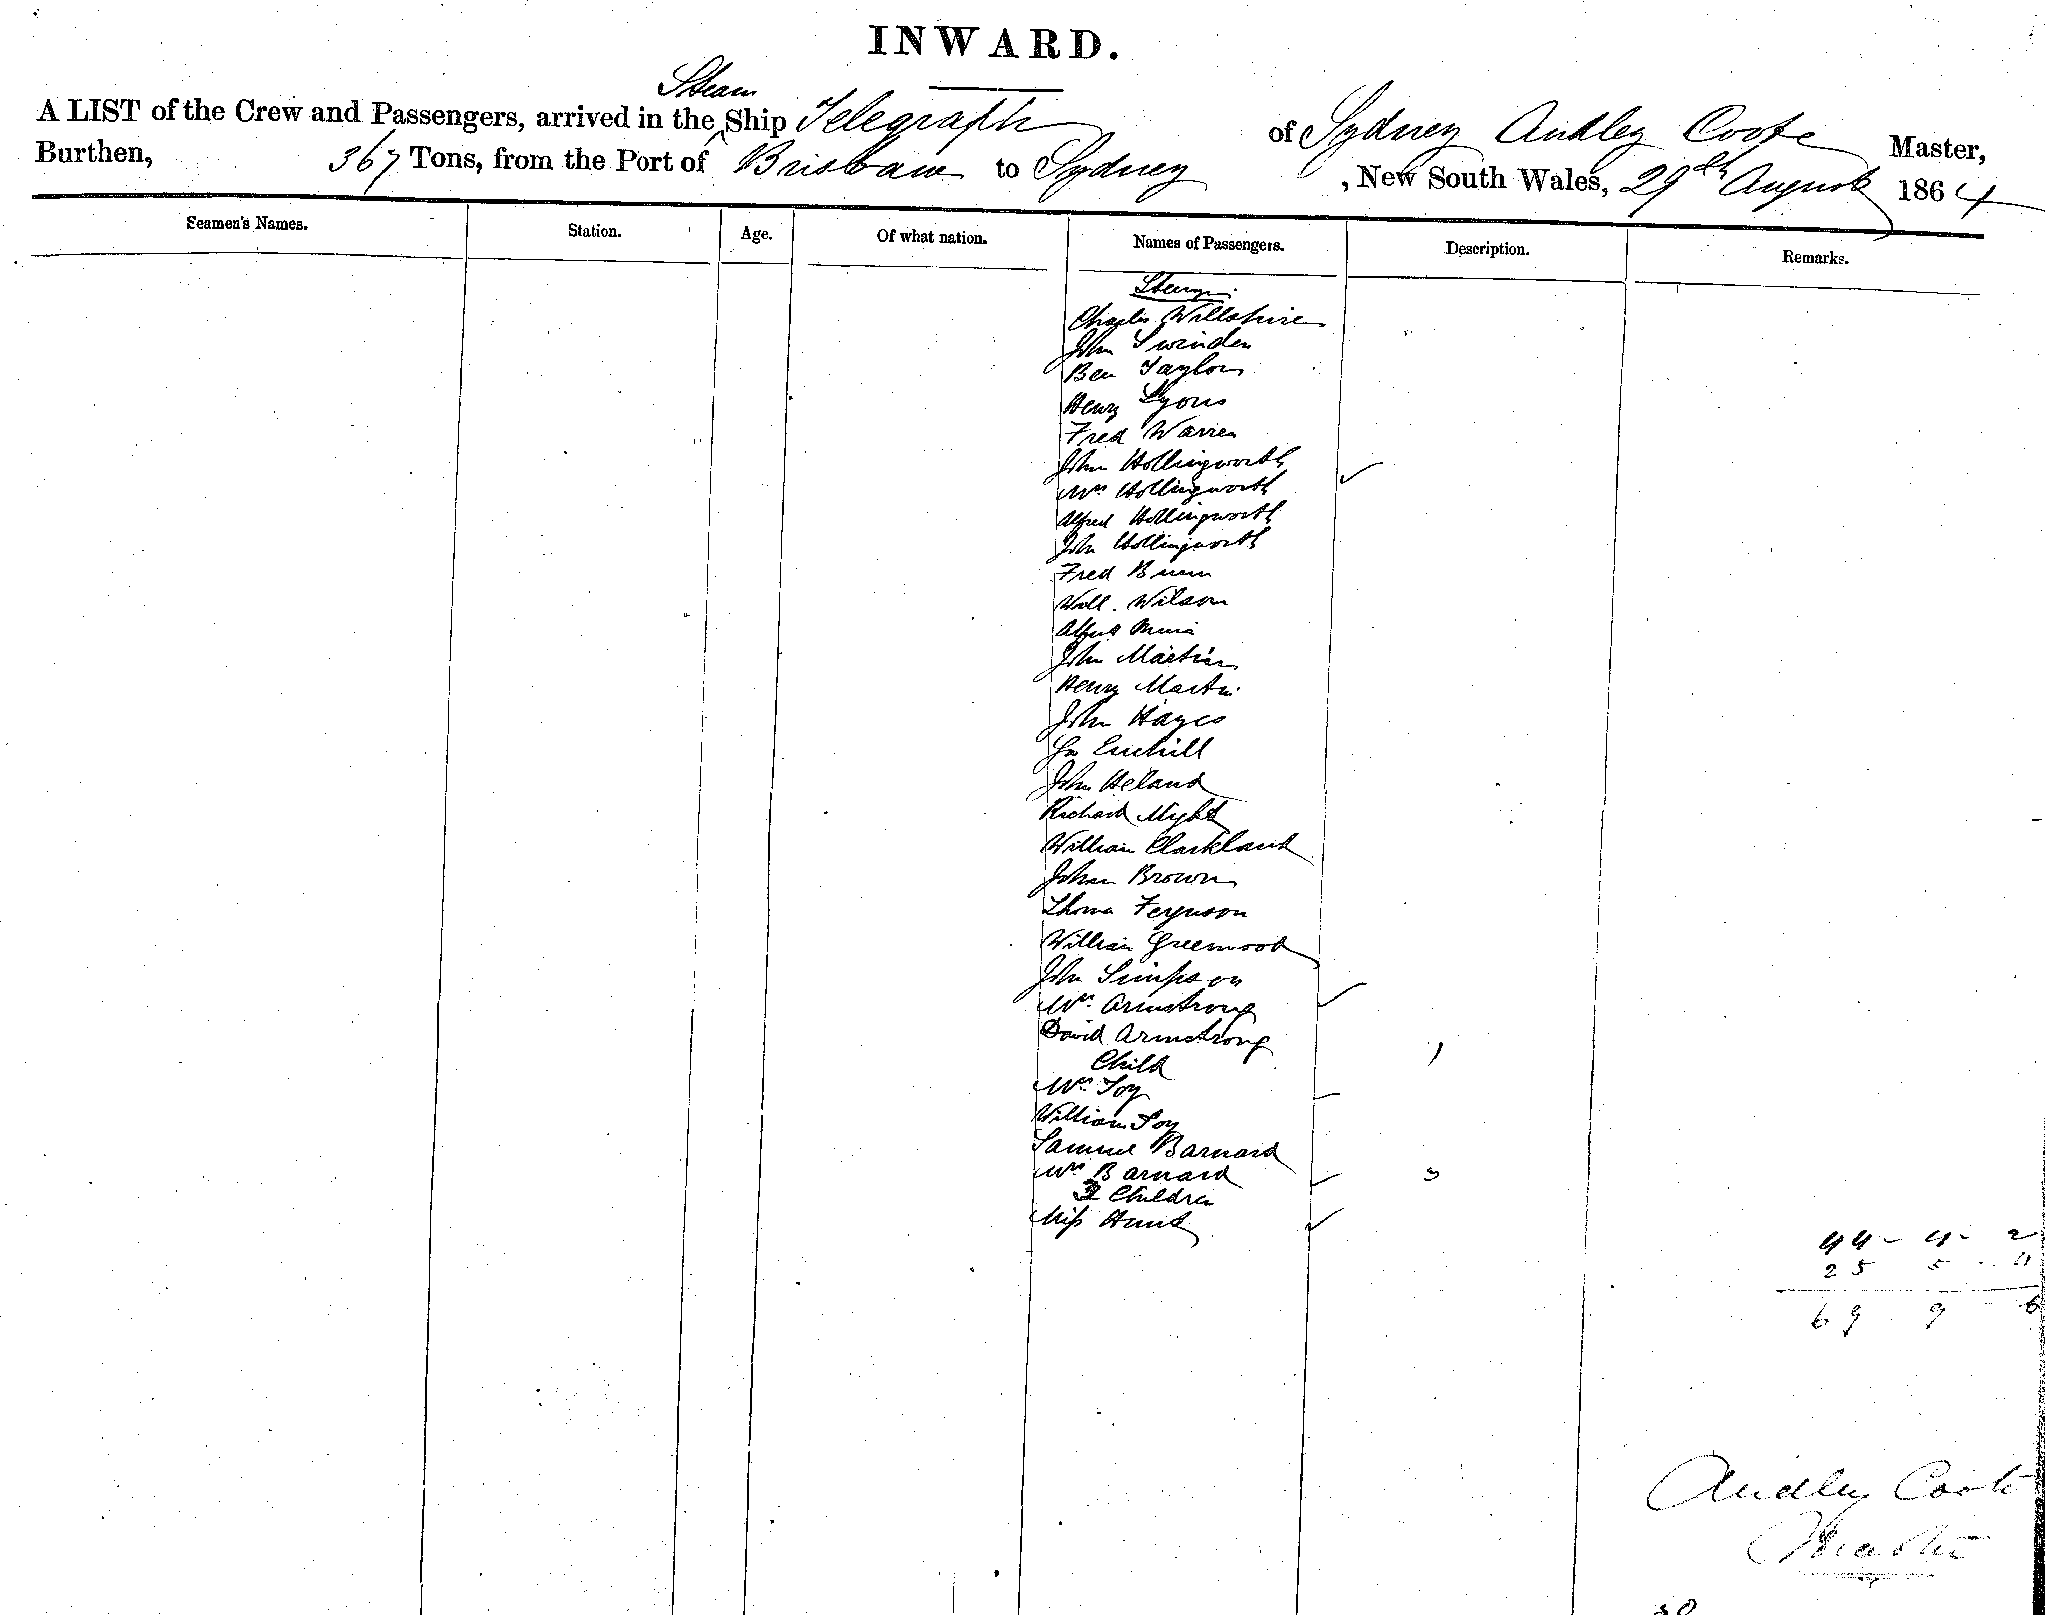 INWARD.
Steam
A LIST of the Crew and Passengers, arrived in the Ship Telegraph of Sydney Audley Coote Master,
Burthen, 367 Tons, from the Port of Brisbane to Sydney , New South Wales, 29th August 1864
Seamen's Names. Station. Age. Of what nation. Names of Passengers. Description. Remarks.
Charles Willshire
John Swinden
Ben Taylor
Henry Lyons
Fred Warren
John Hollingworth
Mrs Hollingworth
Alfred Hollingworth
John Hollingworth
Fred
Will. Wilson
Alfred
John Martin
Henry Martin
John Hayes
John Heland
Richard
William Clarkland
John Brown
Thoma Ferguson
William Greenwood
John Simpson
Mrs Armstrong
David Armstrong
Child 1
Mrs Toy
William Toy
Samuel Barnard
Mrs Barnard 3
3 Children
Miss Hunt
44 - 4 - 2
25 5 - 4
69 9 6
Audley Coote
Master
50